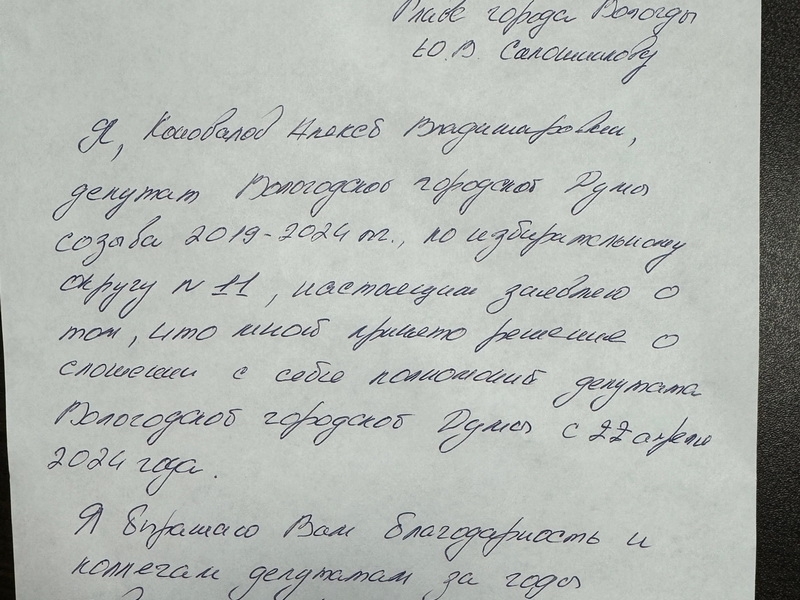 Главе города Вологды
Ю.В. Сапожникову
Я, Коновалов Алексей Владимирович,
депутат Вологодской городской Думы
созыва 2019-2024 гг., по избирательному
округу № 11, настоящим заявляю о
том, что мной принято решение о
сложении с себя полномочий депутата
Вологодской городской Думы с 22 апреля
2024 года.
Я выражаю Вам благодарность и
коллегам депутатам за годы